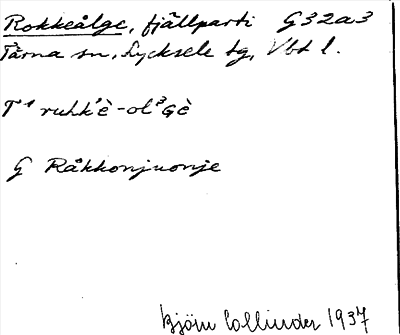 Rokkeålge, fjällparti G32a3
Tärna sn, Lycksele lg, Vbt l.
T¹ ruhk'è-ol³Gè
G Råkkonjuonje
Björn Collinder 1937